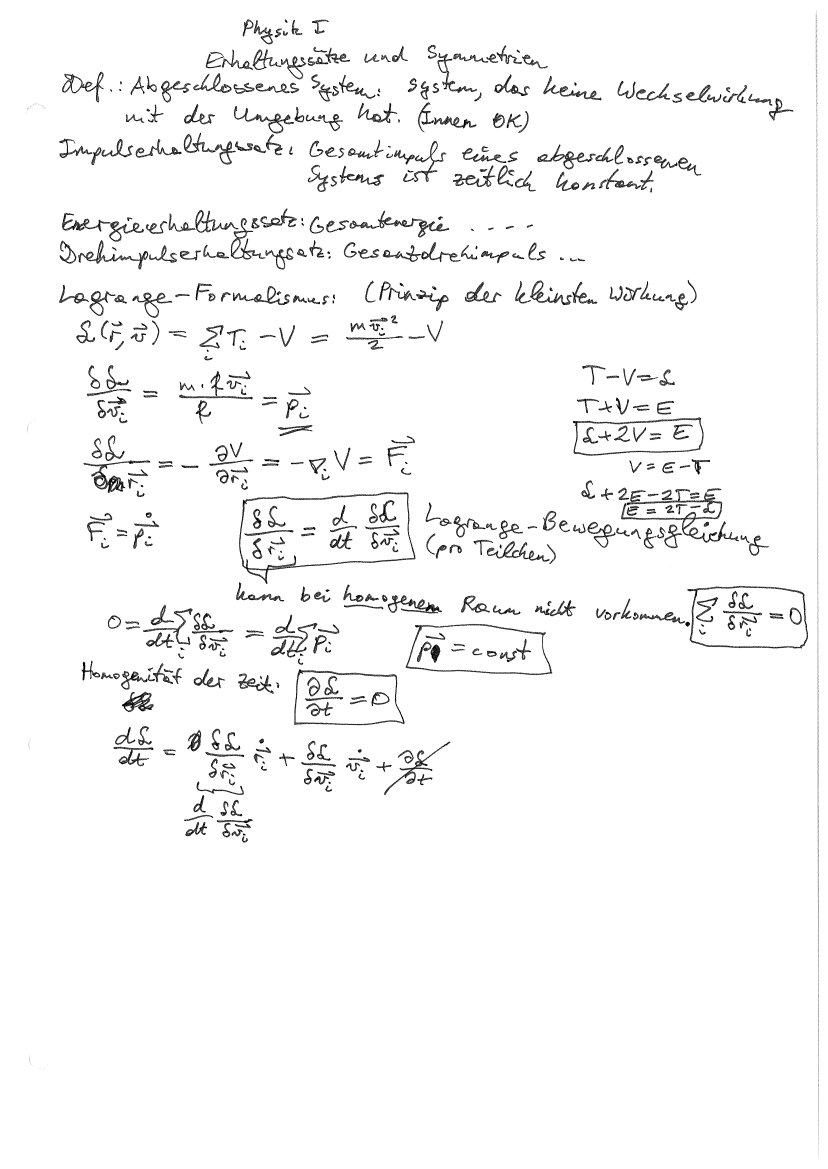 Physik I
Erhaltungssätze und Symmetrien
Def.: Abgeschlossenes System: System, das keine Wechselwirkung
mit der Umgebung hat. (Innen OK)
Impulserhaltungssatz: Gesamtimpuls eines abgeschlossenen
Systems ist zeitlich konstant.
Energieerhaltungssatz: Gesamtenergie ....
Drehimpulserhaltungssatz: Gesamtdrehimpuls ...
Lagrange-Formalismus: (Prinzip der kleinsten Wirkung)
ℒ(r⃗, v⃗) = ∑_i T_i − V = m v⃗_i² / 2 − V
δℒ/δv⃗_i = m·2 v⃗_i / 2 = p⃗_i
T−V=ℒ
T+V=E
ℒ+2V=E
V=E−T
ℒ+2E−2T=E
E=2T−ℒ
δℒ/δr⃗_i = − ∂V/∂r⃗_i = −∇_i V = F⃗_i
F⃗_i = p⃗̇_i
δℒ/δr⃗_i = d/dt δℒ/δv⃗_i Lagrange-Bewegungsgleichung
(pro Teilchen)
kann bei homogenem Raum nicht vorkommen. ∑_i δℒ/δr⃗_i = 0
0 = d/dt ∑_i δℒ/δv⃗_i = d/dt ∑_i p⃗_i
p⃗ = const
Homogenität der Zeit: ∂ℒ/∂t = 0
dℒ/dt = δℒ/δr⃗_i r⃗̇_i + δℒ/δv⃗_i v⃗̇_i + ∂ℒ/∂t
d/dt δℒ/δv⃗_i